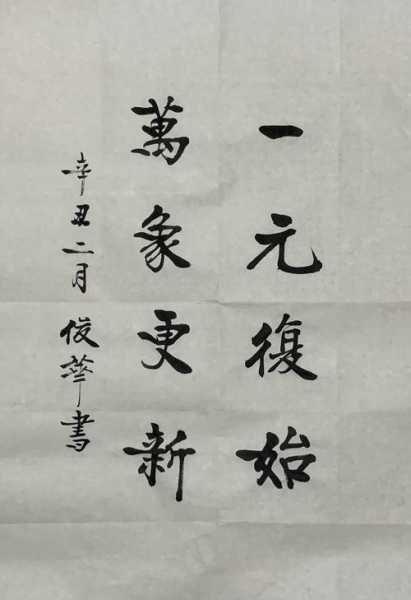 一元復始
萬象更新
辛丑二月 俊華書